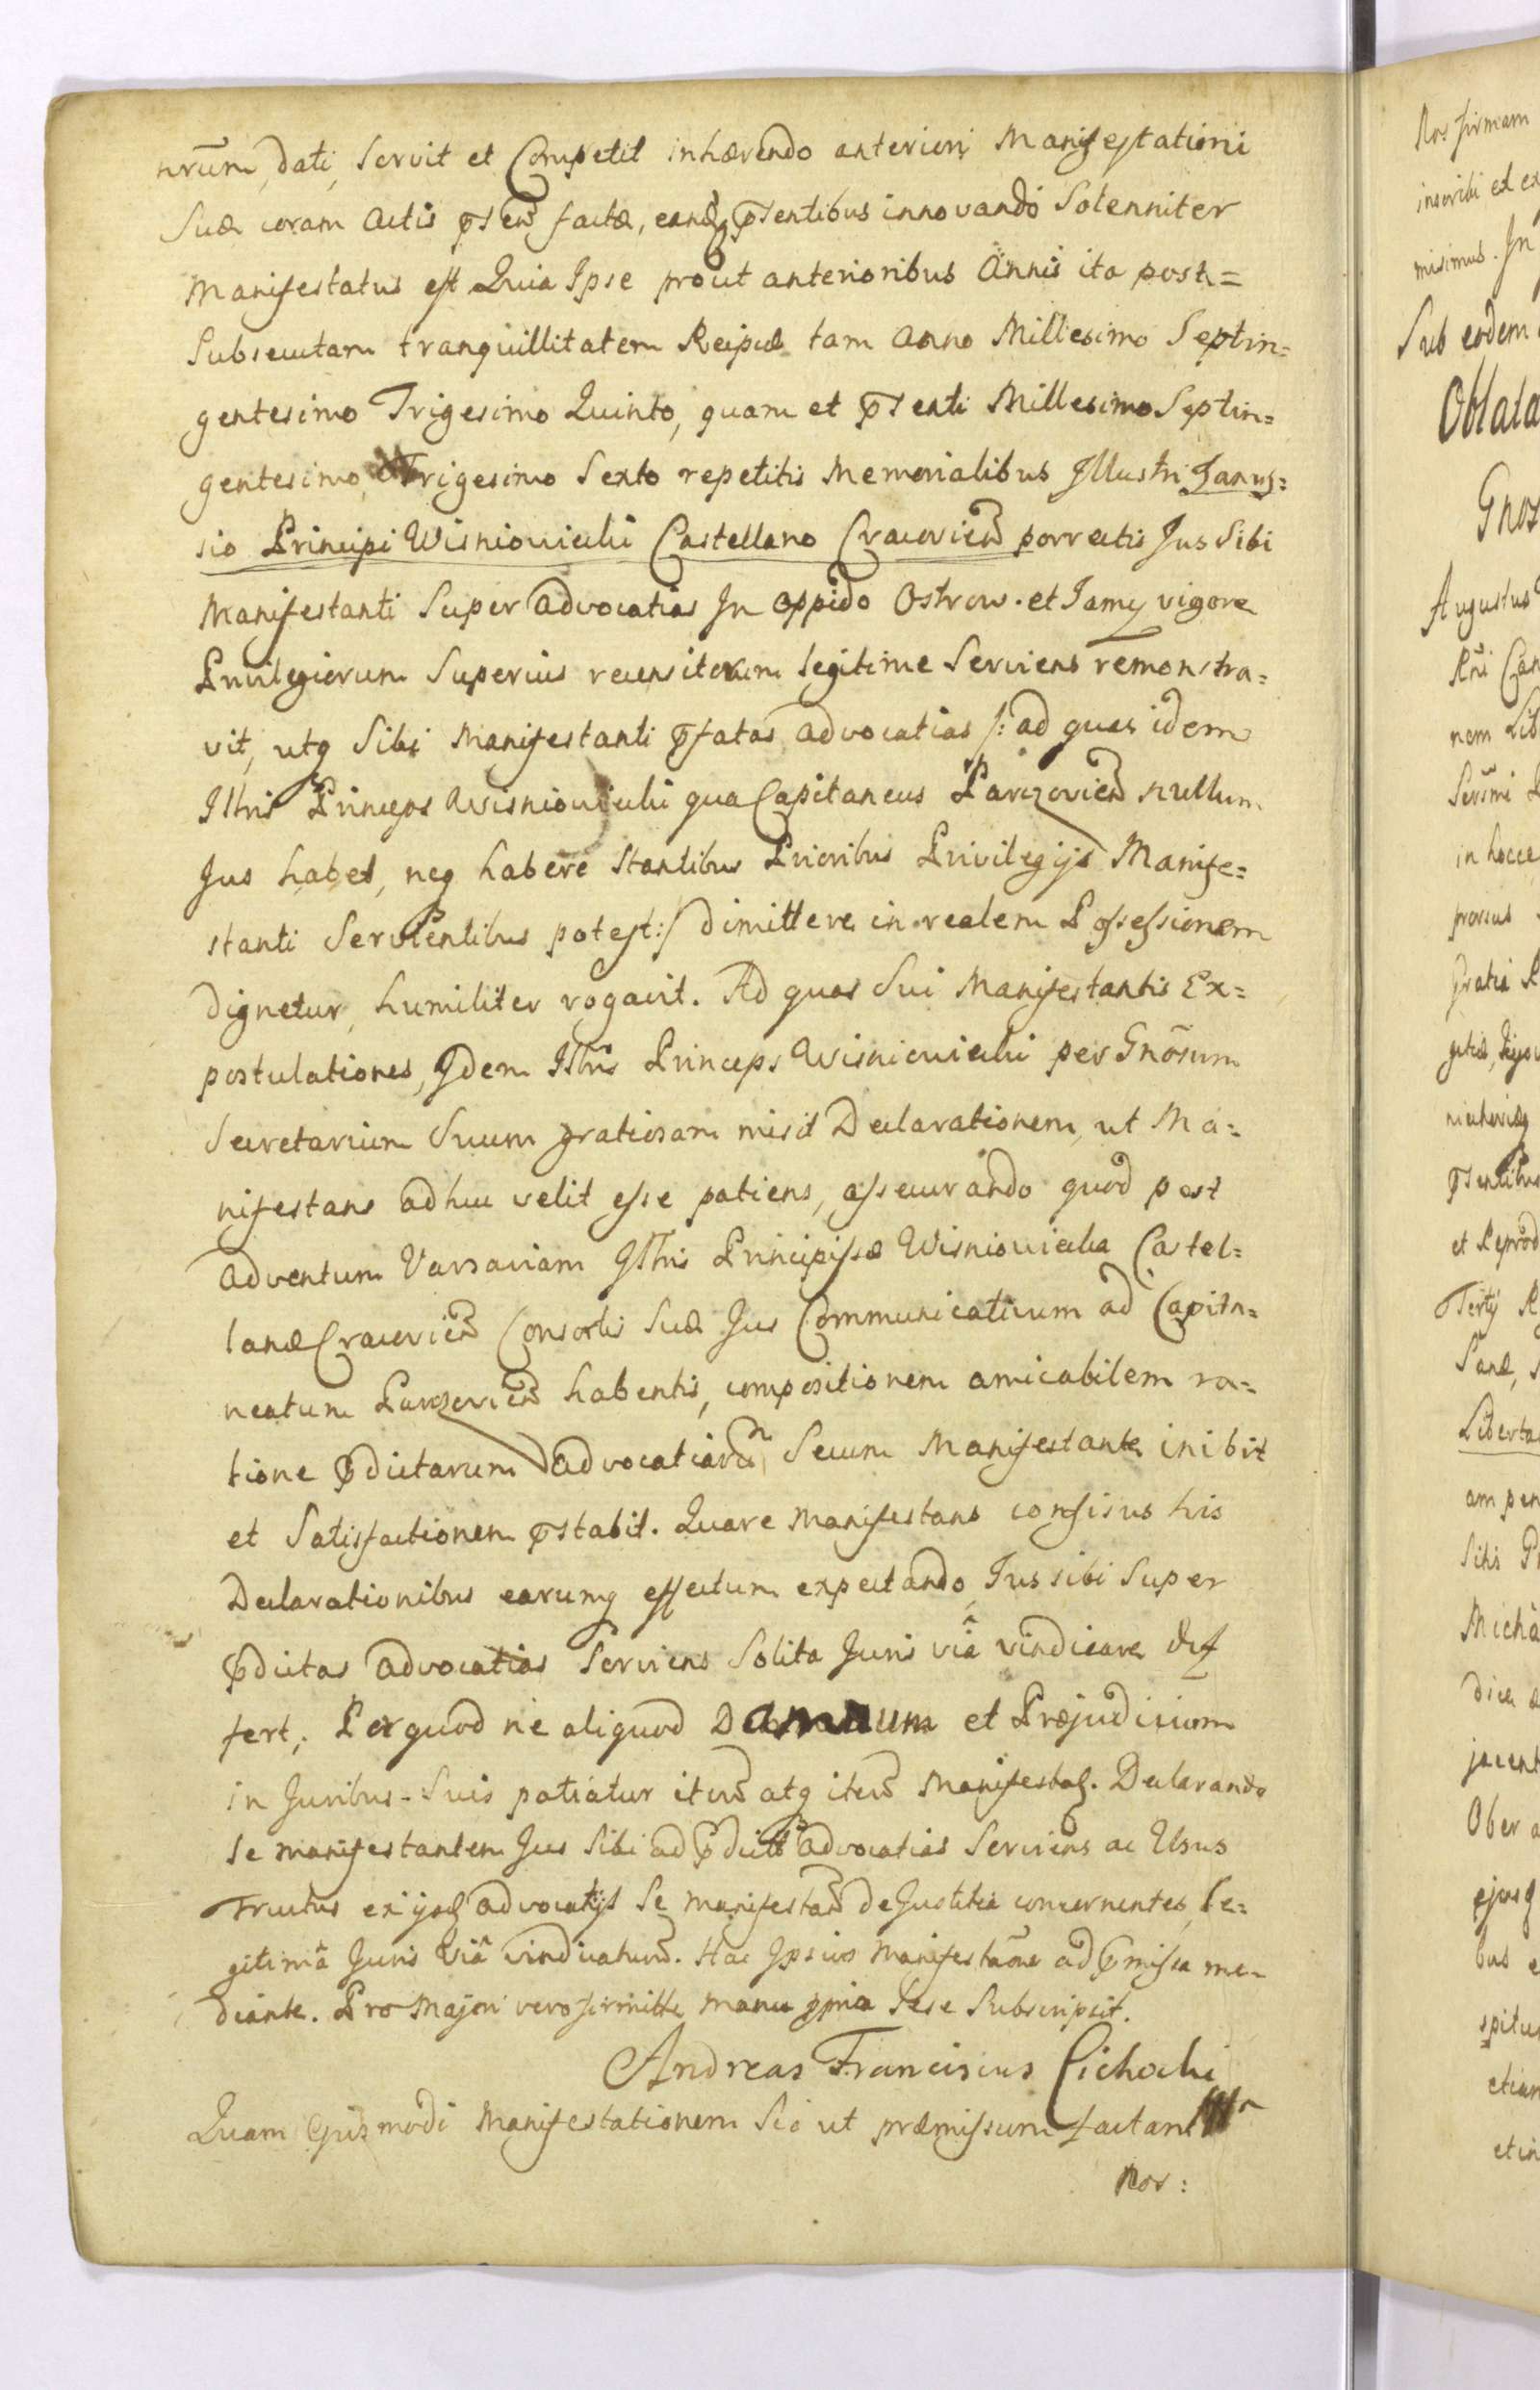 nrum, dati, Servit et Competit inhærendo anteriori Manifestationi
Suæ coram Actis pñten factæ, eandq pñtentibus innovando Solenniter
Manifestatus est Quia Ipse prout anterioribus Annis ita post=
Subsecutam tranquillitatem Reipcæ tam Anno Millesimo Septin=
gentesimo Trigesimo Quinto, quam et pñtenti Millesimo Septin=
gentesimo Trigesimo Sexto repetitis Memorialibus Illustri Janus=
sio Principi Wisniowiecki Castellano Cracovien porrectis Jus Sibi
Manifestanti Super Advocatias In Oppido Ostrow. et Jamy vigore
Privilegiorum Superius recensitorum legitime Serviens remonstra=
vit, utq Sibi Manifestanti pfatas Advocatias /: ad quas idem
Illris Princeps Wisniowiecki qua Capitaneus Parczovien nullum
Jus habet, neq habere Stantibus Prioribus Privilegijs Manife=
stanti Servientibus potest :/ dimittere in realem Possessionem
dignetur, humiliter rogavit. Ad quas Sui Manifestantis Ex=
postulationes, Idem Illris Princeps Wisniowiecki per Gnosum
Secretarium Suum gratiosam misit Declarationem, ut Ma=
nifestans adhuc velit esse patiens, assecurando quod post
Adventum Varsaviam Illris Principissæ Wisniowiecka Castel=
lanæ Cracovien Consortis Suæ Jus Communicativum ad Capita=
neatum Parczovien habentis, compositionem amicabilem ra=
tione pdictarum Advocatiarum Secum Manifestante inibit
et Satisfactionem pstabit. Quare Manifestans confisus his
Declarationibus earumq effectum expectando, Jus sibi Super
pdictas Advocatias Serviens Solita Juris viâ vindicare dif
fert, Per quod ne aliquod Damnum et Præjudicium
in Juribus Suis patiatur iterũ atq iterũ Manifestat. Declarando
Se manifestantem Jus Sibi ad pdictas Advocatias Serviens ac Usus
Fructus ex ijsd Advocatijs Se manifestan de Justitia concernentes, le=
gitimâ Juris Viâ vindicaturũ. Hac Ipsius Manifestaõne ad pmissa me=
diante. Pro Majori vero firmitte manu ppria Sese Subscripsit.
Andreas Franciscus Cichocki
Quam ejusmodi Manifestationem Sic ut præmissum factam
Nos: